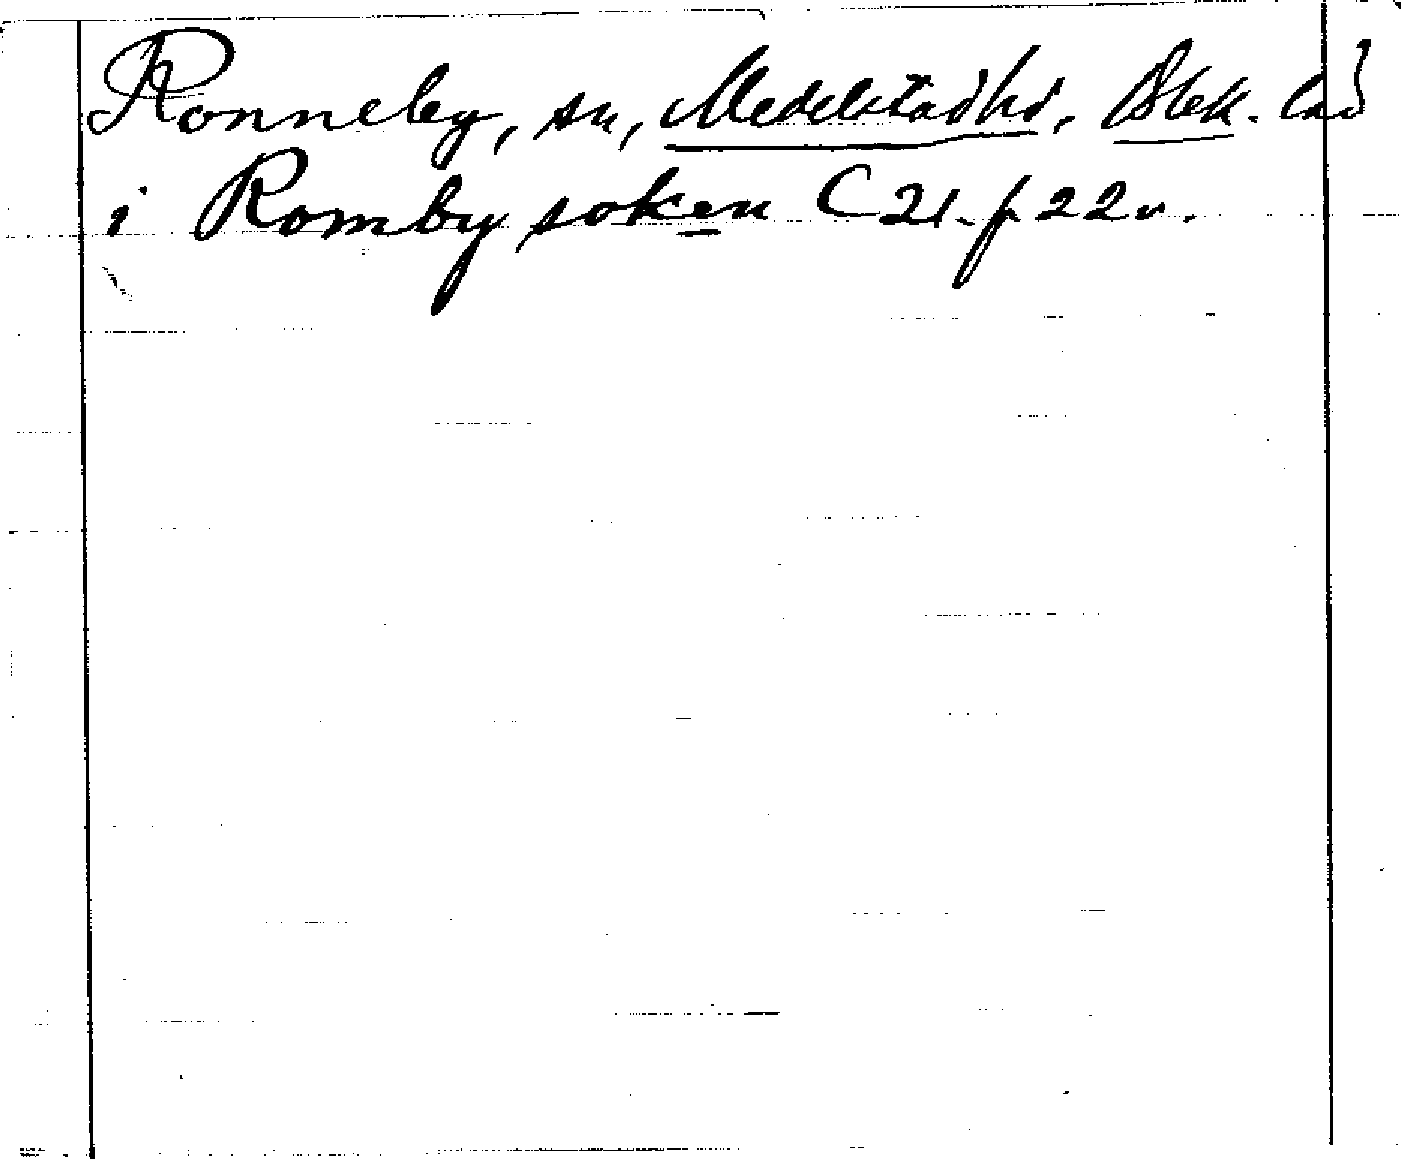 Ronneby, sn, Medelstadhd. Blek. län
i Romby soken C 21. f 22 v.